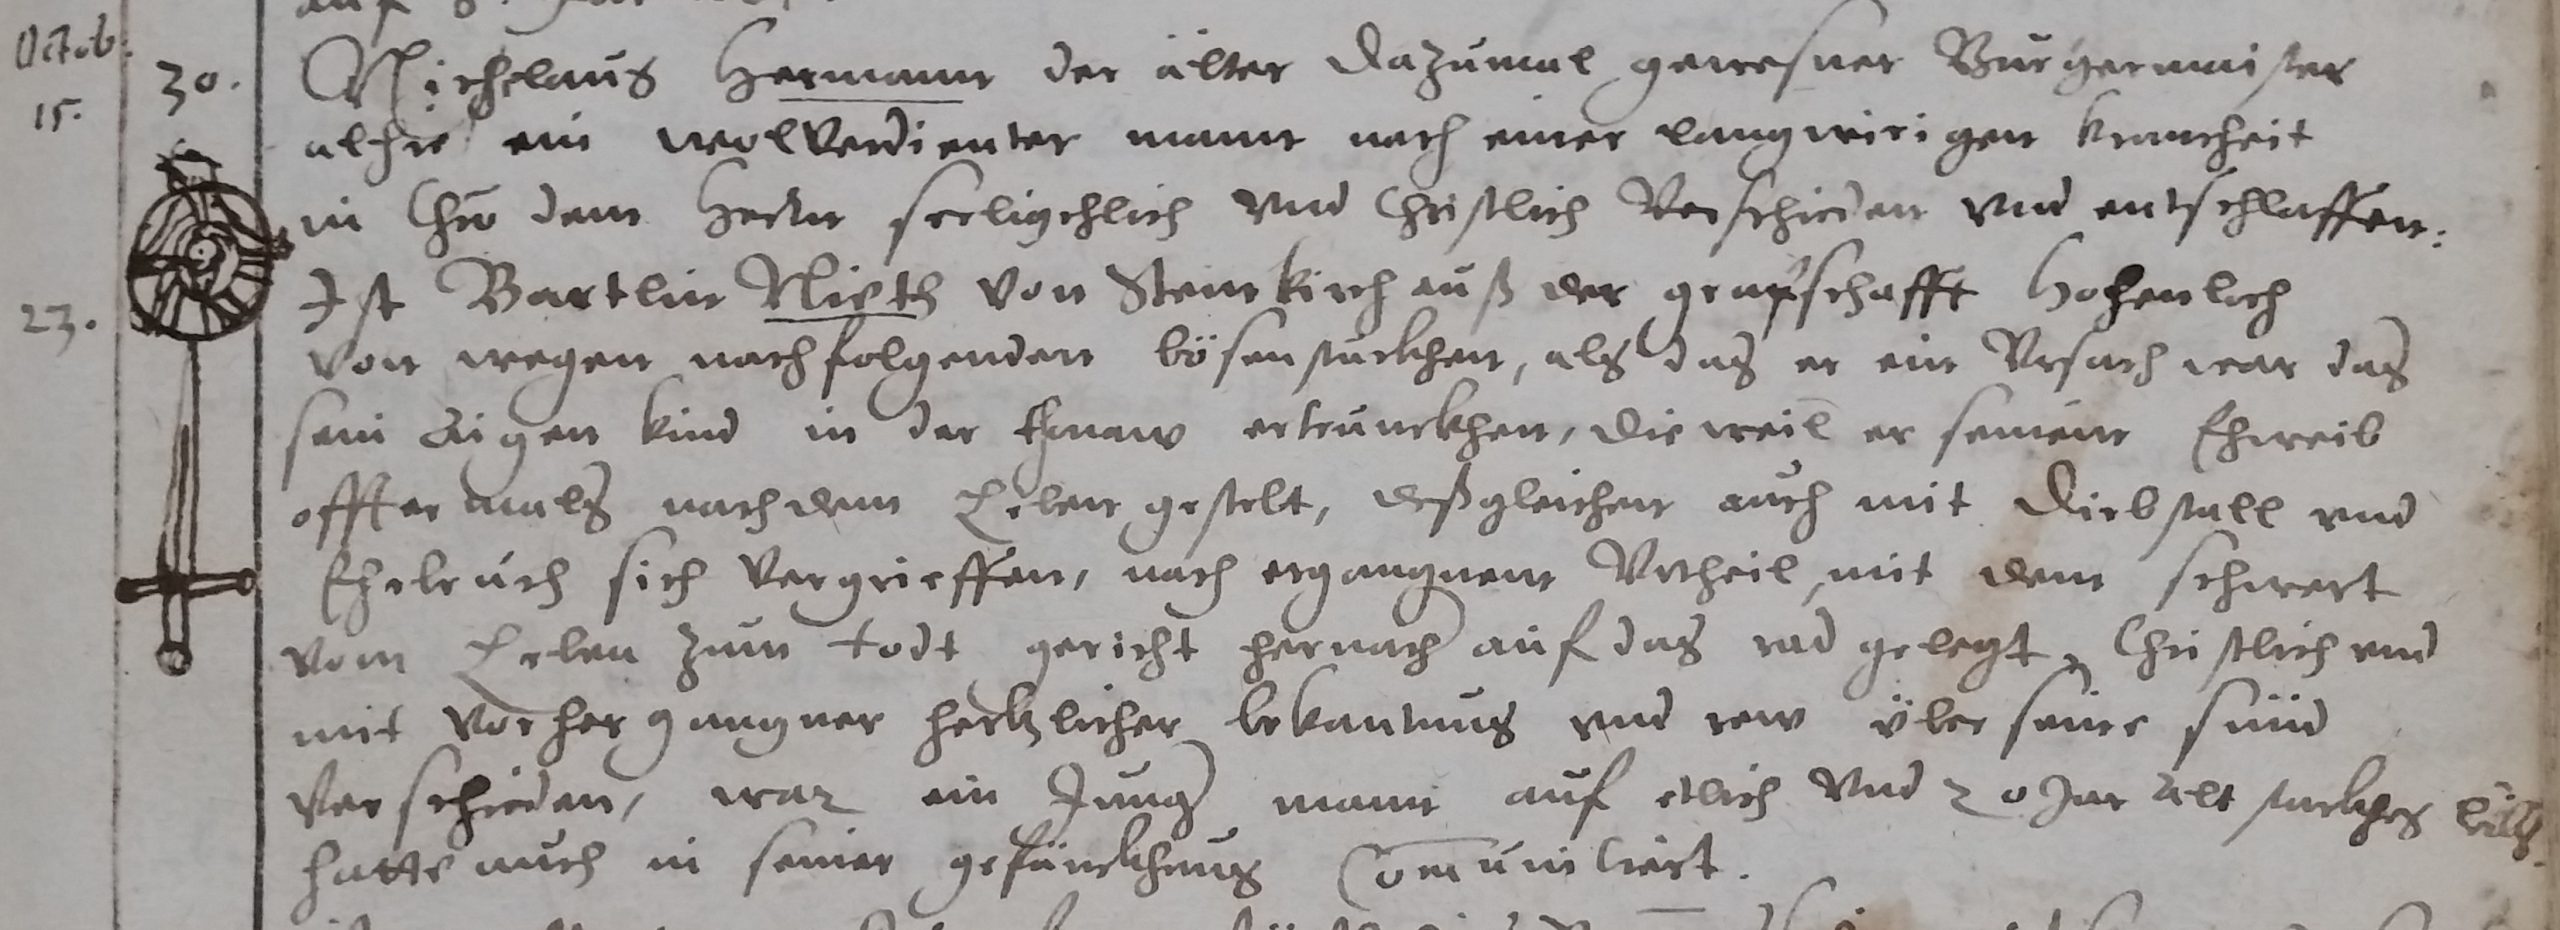 Octob:
15.
30.
Nichelaus Hermann der älter dazumal gewesner Burgermaister
alhie ein wolverdienter mann nach einer langwirigen kranckheit
in Chro dem Herrn seeligchlich vnd Christlich Verschieden vnd entschlaffen.
23.
Ist Bartlin Nieth von Steinkirch auß der graffschafft Hohenloh
von wegen nachfolgenden bösen stuckhen, als das er ein Vrsach war das
sein aigen kind in der thonaw ertrunckhen, die weil er seinem Ehweib
offtermals nach dem Leben gestelt, deßgleichen auch mit Diebstall vnd
Ehebruch sich vergrieffen, nach ergangnem Vrtheil, mit dem schwert
vom Leben zum todt gericht hernach auf das rad gelegt, Christlich vnd
mit vorhergangner hertzlicher bekantnus vnd rew über seine sünd
verschieden, war ein Junger mann auf etlich vnd 20 Jar alt starckhes leibs.
hatte auch in seiner gefänckhnus Comuniciert.